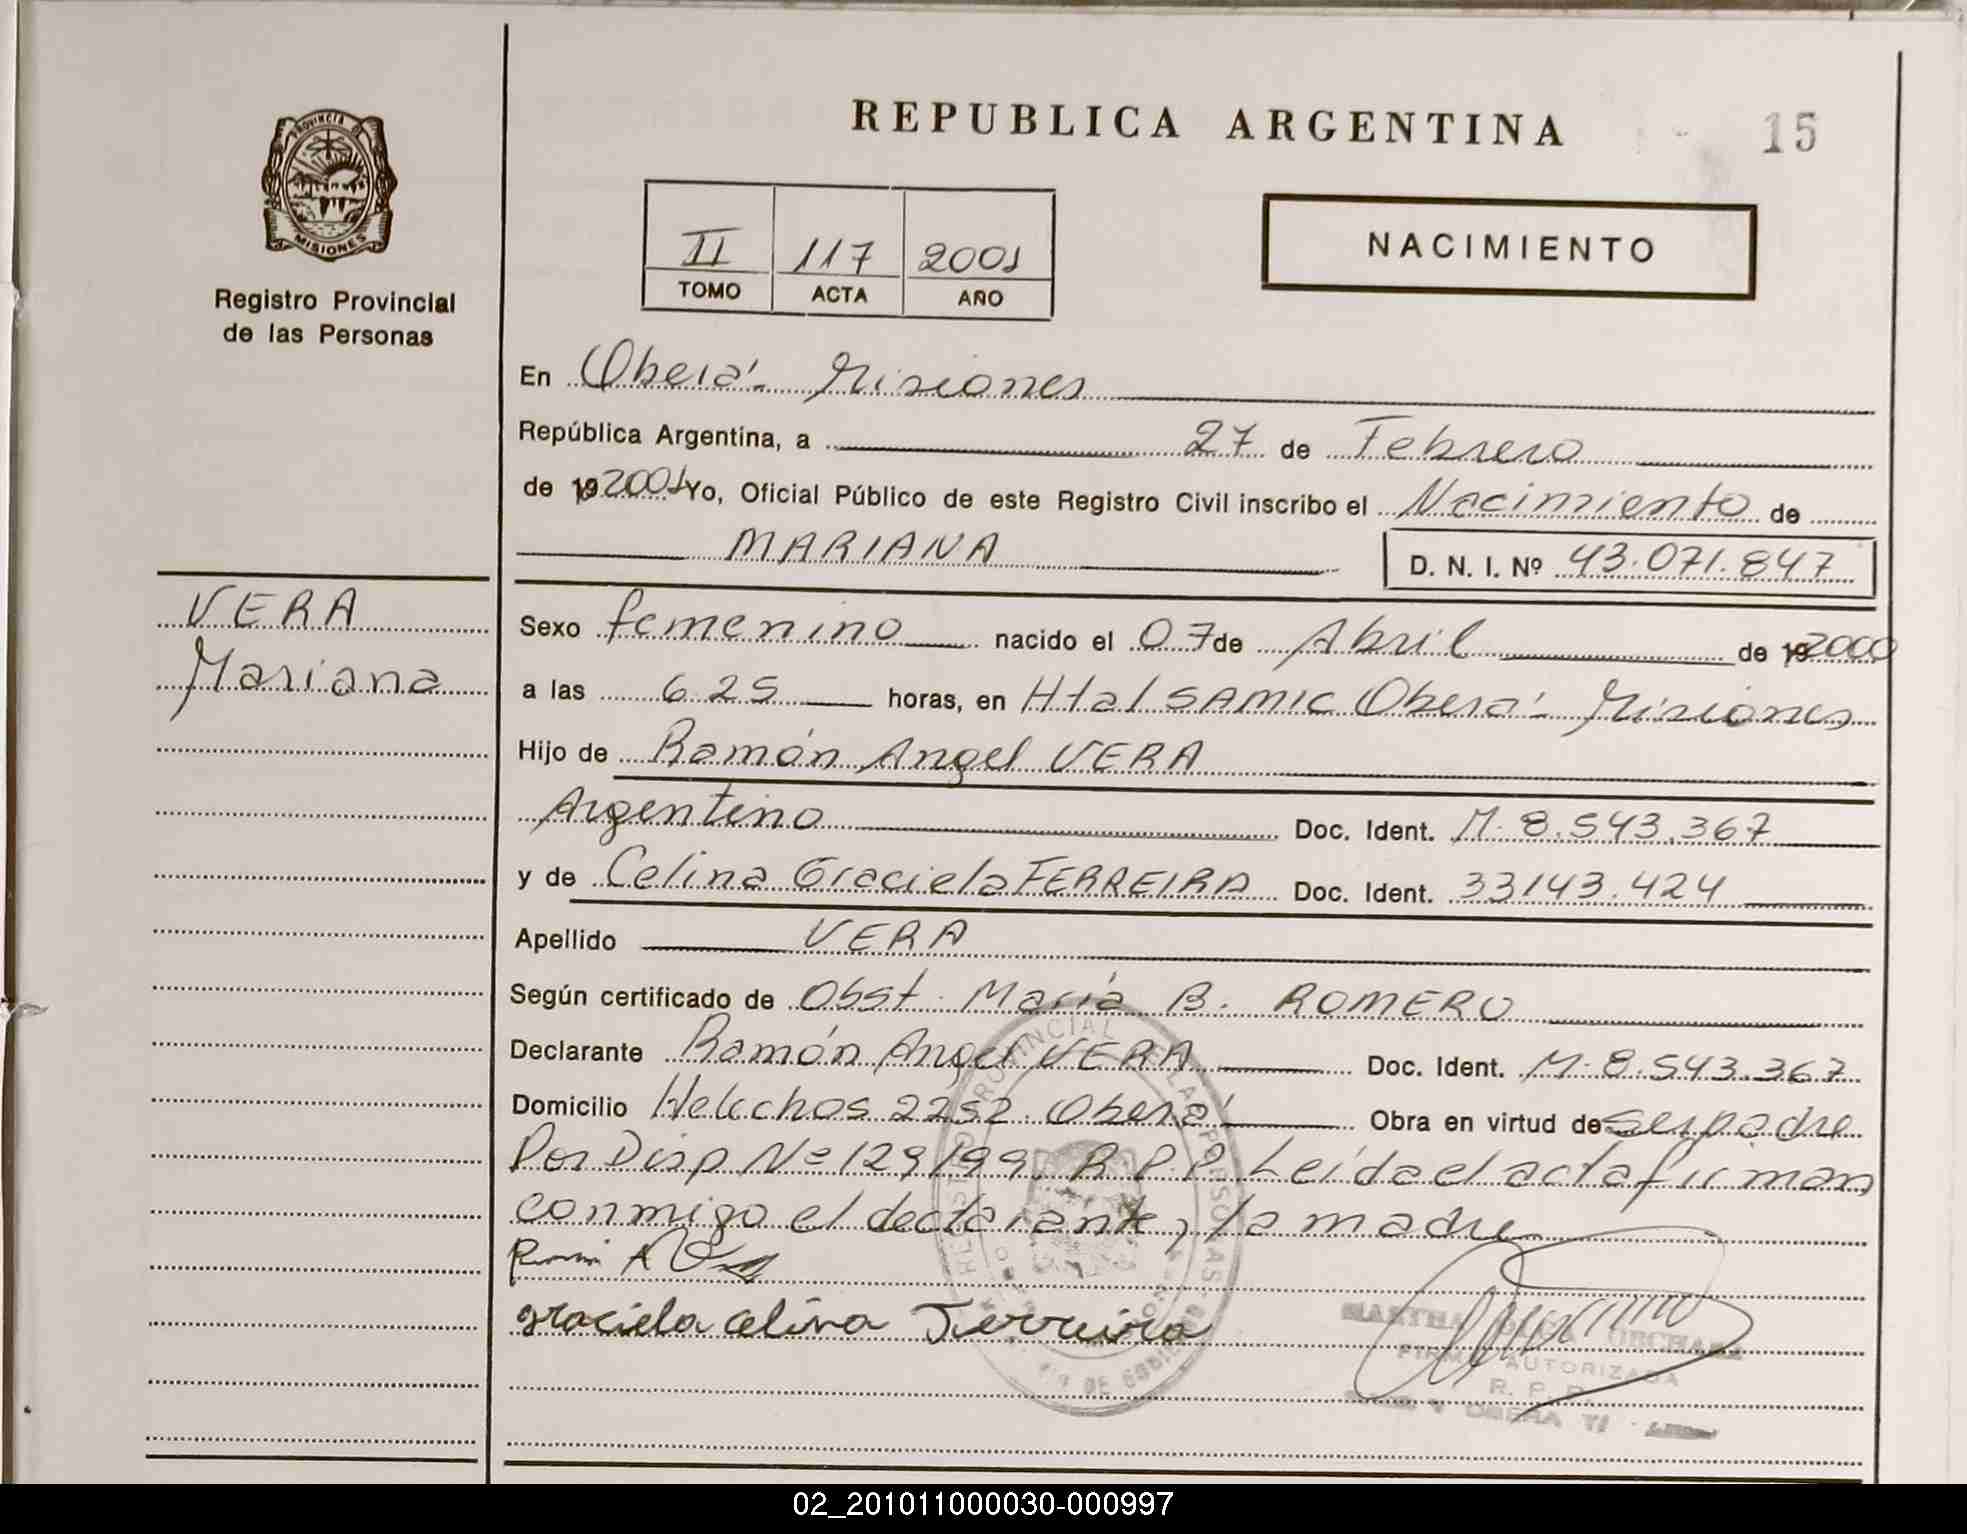 PROVINCIA DE
MISIONES
Registro Provincial
de las Personas
VERA
Mariana
REPUBLICA ARGENTINA
15
II 117 2001
TOMO ACTA AÑO
NACIMIENTO
En Oberá - Misiones
República Argentina, a 27 de Febrero
de 19 2001 Yo, Oficial Público de este Registro Civil inscribo el Nacimiento de
MARIANA D. N. I. Nº 43.071.847
Sexo femenino nacido el 07 de Abril de 19 2000
a las 6 25 horas, en Htal SAMIC Oberá - Misiones
Hijo de Ramón Angel VERA
Argentino Doc. Ident. M. 8.543.367
y de Celina Graciela FERREIRA Doc. Ident. 33143.424
Apellido VERA
Según certificado de Obst. María B. ROMERO
Declarante Ramón Angel VERA Doc. Ident. M. 8.543.367
Domicilio Helechos 2252. Oberá Obra en virtud de ser padre
Por Disp Nº 129/99 R.P.P. Leída el acta firman
conmigo el declarante y la madre
graciela celina Ferreira
FIRMA AUTORIZADA
R. P. P.
OBERA
02_201011000030-000997